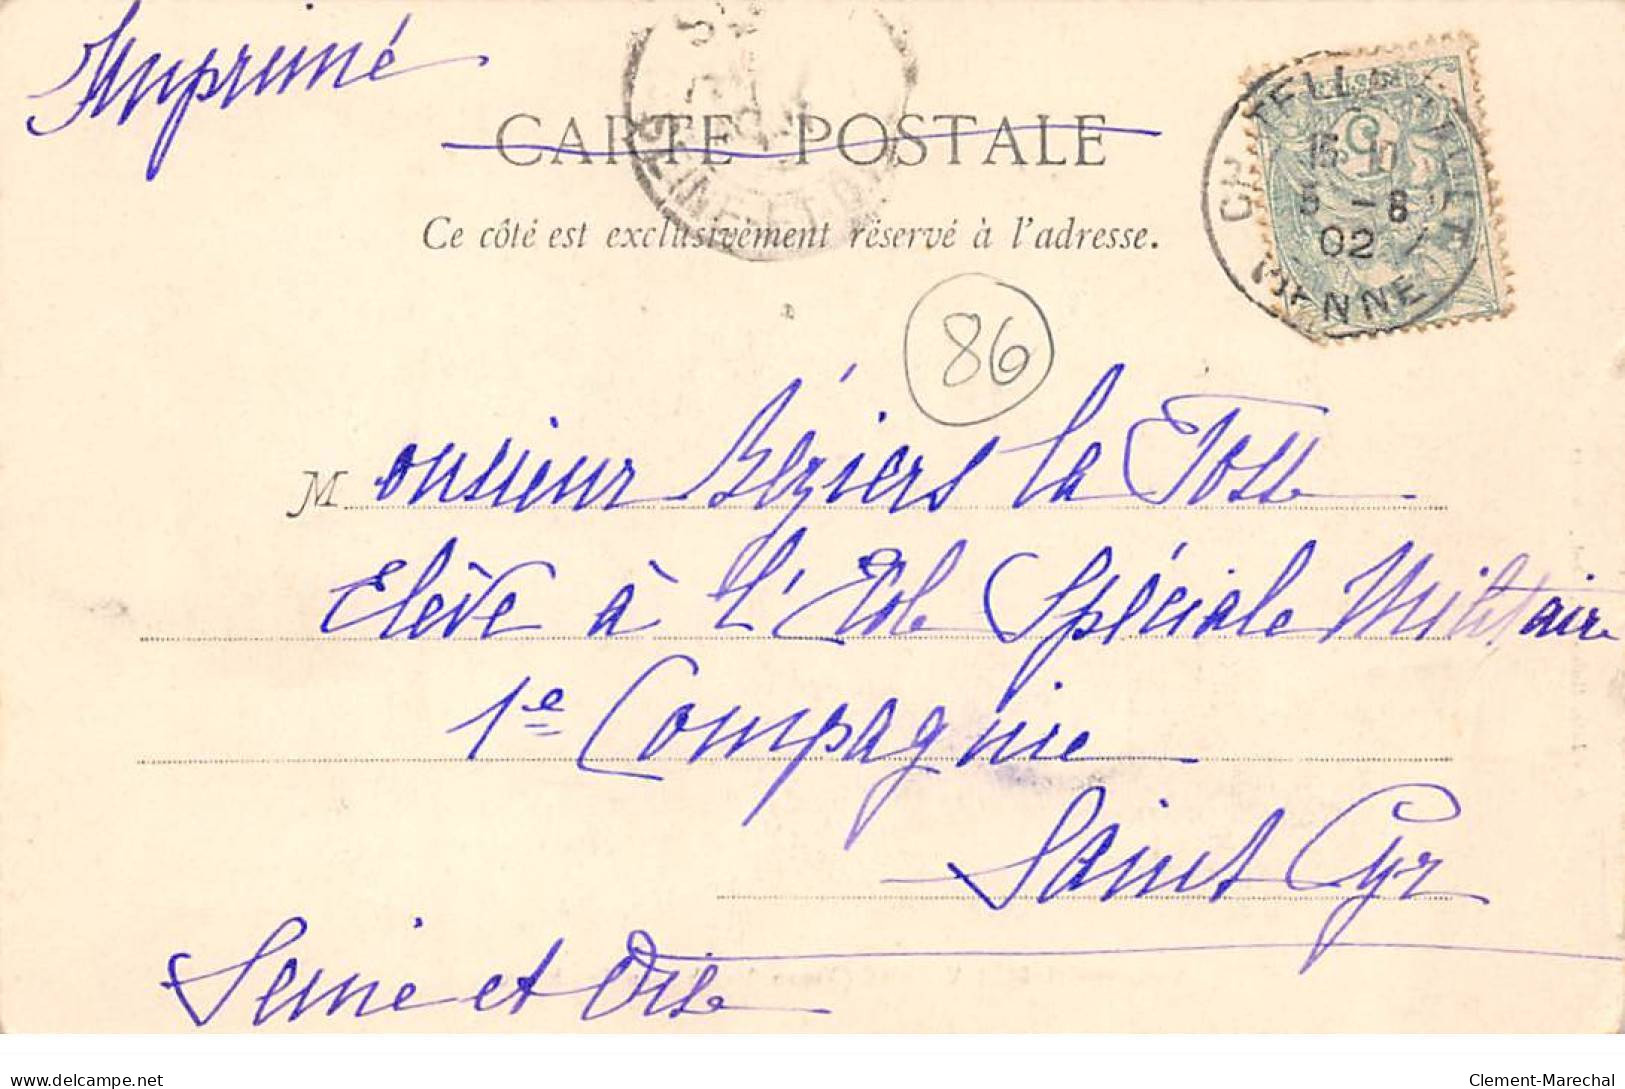 Imprimé
CARTE POSTALE
Ce côté est exclusivement réservé à l'adresse.
CHATELLERAULT
15 10
5 - 8
02
VIENNE
SEINE-ET-OISE
5
86
Monsieur Béziers la Fosse
Elève à L'Ecole Spéciale Militaire
1e Compagnie
Saint Cyr
Seine et Oise
delcampe.net
Clement-Marechal